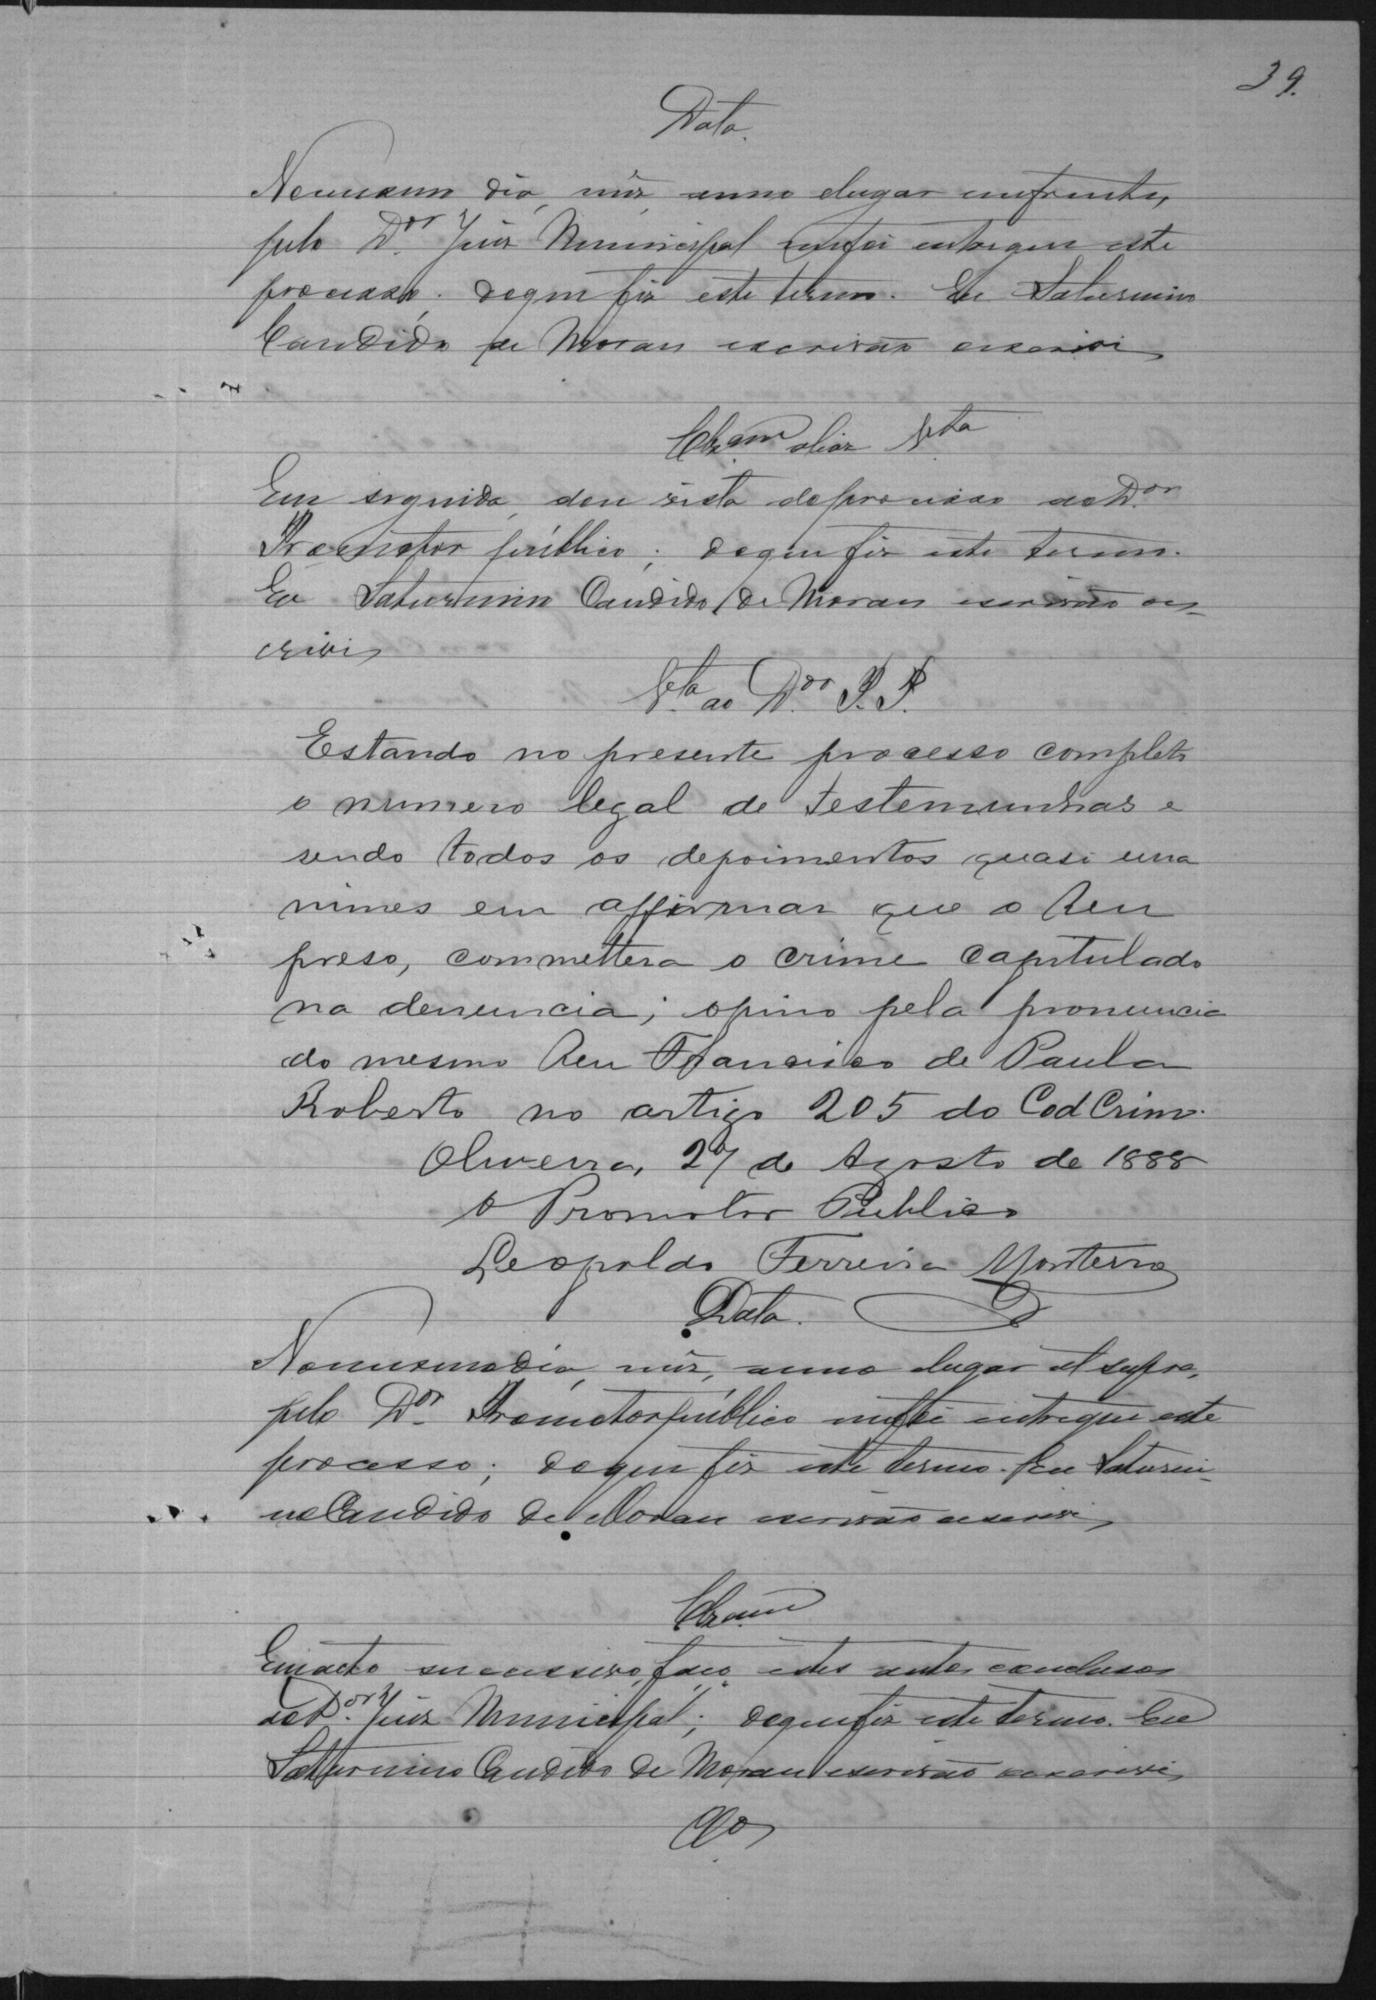 39.
Data.
No mesmo dia, mez, anno e lugar em frente,
pelo Dor. Juiz Municipal me foi entregue este
processo; do que fiz este termo. Eu Saturnino
Candido de Moraes escrivão escrevi
Clzam. aliaz Vta.
Em seguida, dou vista do processo ao Dor.
Promotor público; do que fiz este termo.
Eu Saturnino Candido de Moraes escrivão es-
crevi
Vta. ao Dor. P. P.
Estando no presente processo completo
o numero legal de testemunhas e
sendo todos os depoimentos quasi una
nimes em affirmar que o Reu
preso, commettera o crime capitulado
na denuncia; opino pela pronuncia
do mesmo Reu Francisco de Paula
Roberto no artigo 205 do Cod Crim.
Oliveira, 27 de Agosto de 1888
O Promotor Publico
Leopoldo Ferreira Monteiro
Data.
No mesmo dia, mez, anno e lugar ut supra,
pelo Dor. Promotor público me foi entregue este
processo; do que fiz este termo. Eu Saturni-
no Candido de Moraes escrivão escrevi
Clzam
Em acto successivo, faço estes autos conclusos
ao Dor. Juiz Municipal; do que fiz este termo. Eu
Saturnino Candido de Moraes escrivão escrevi
Clos